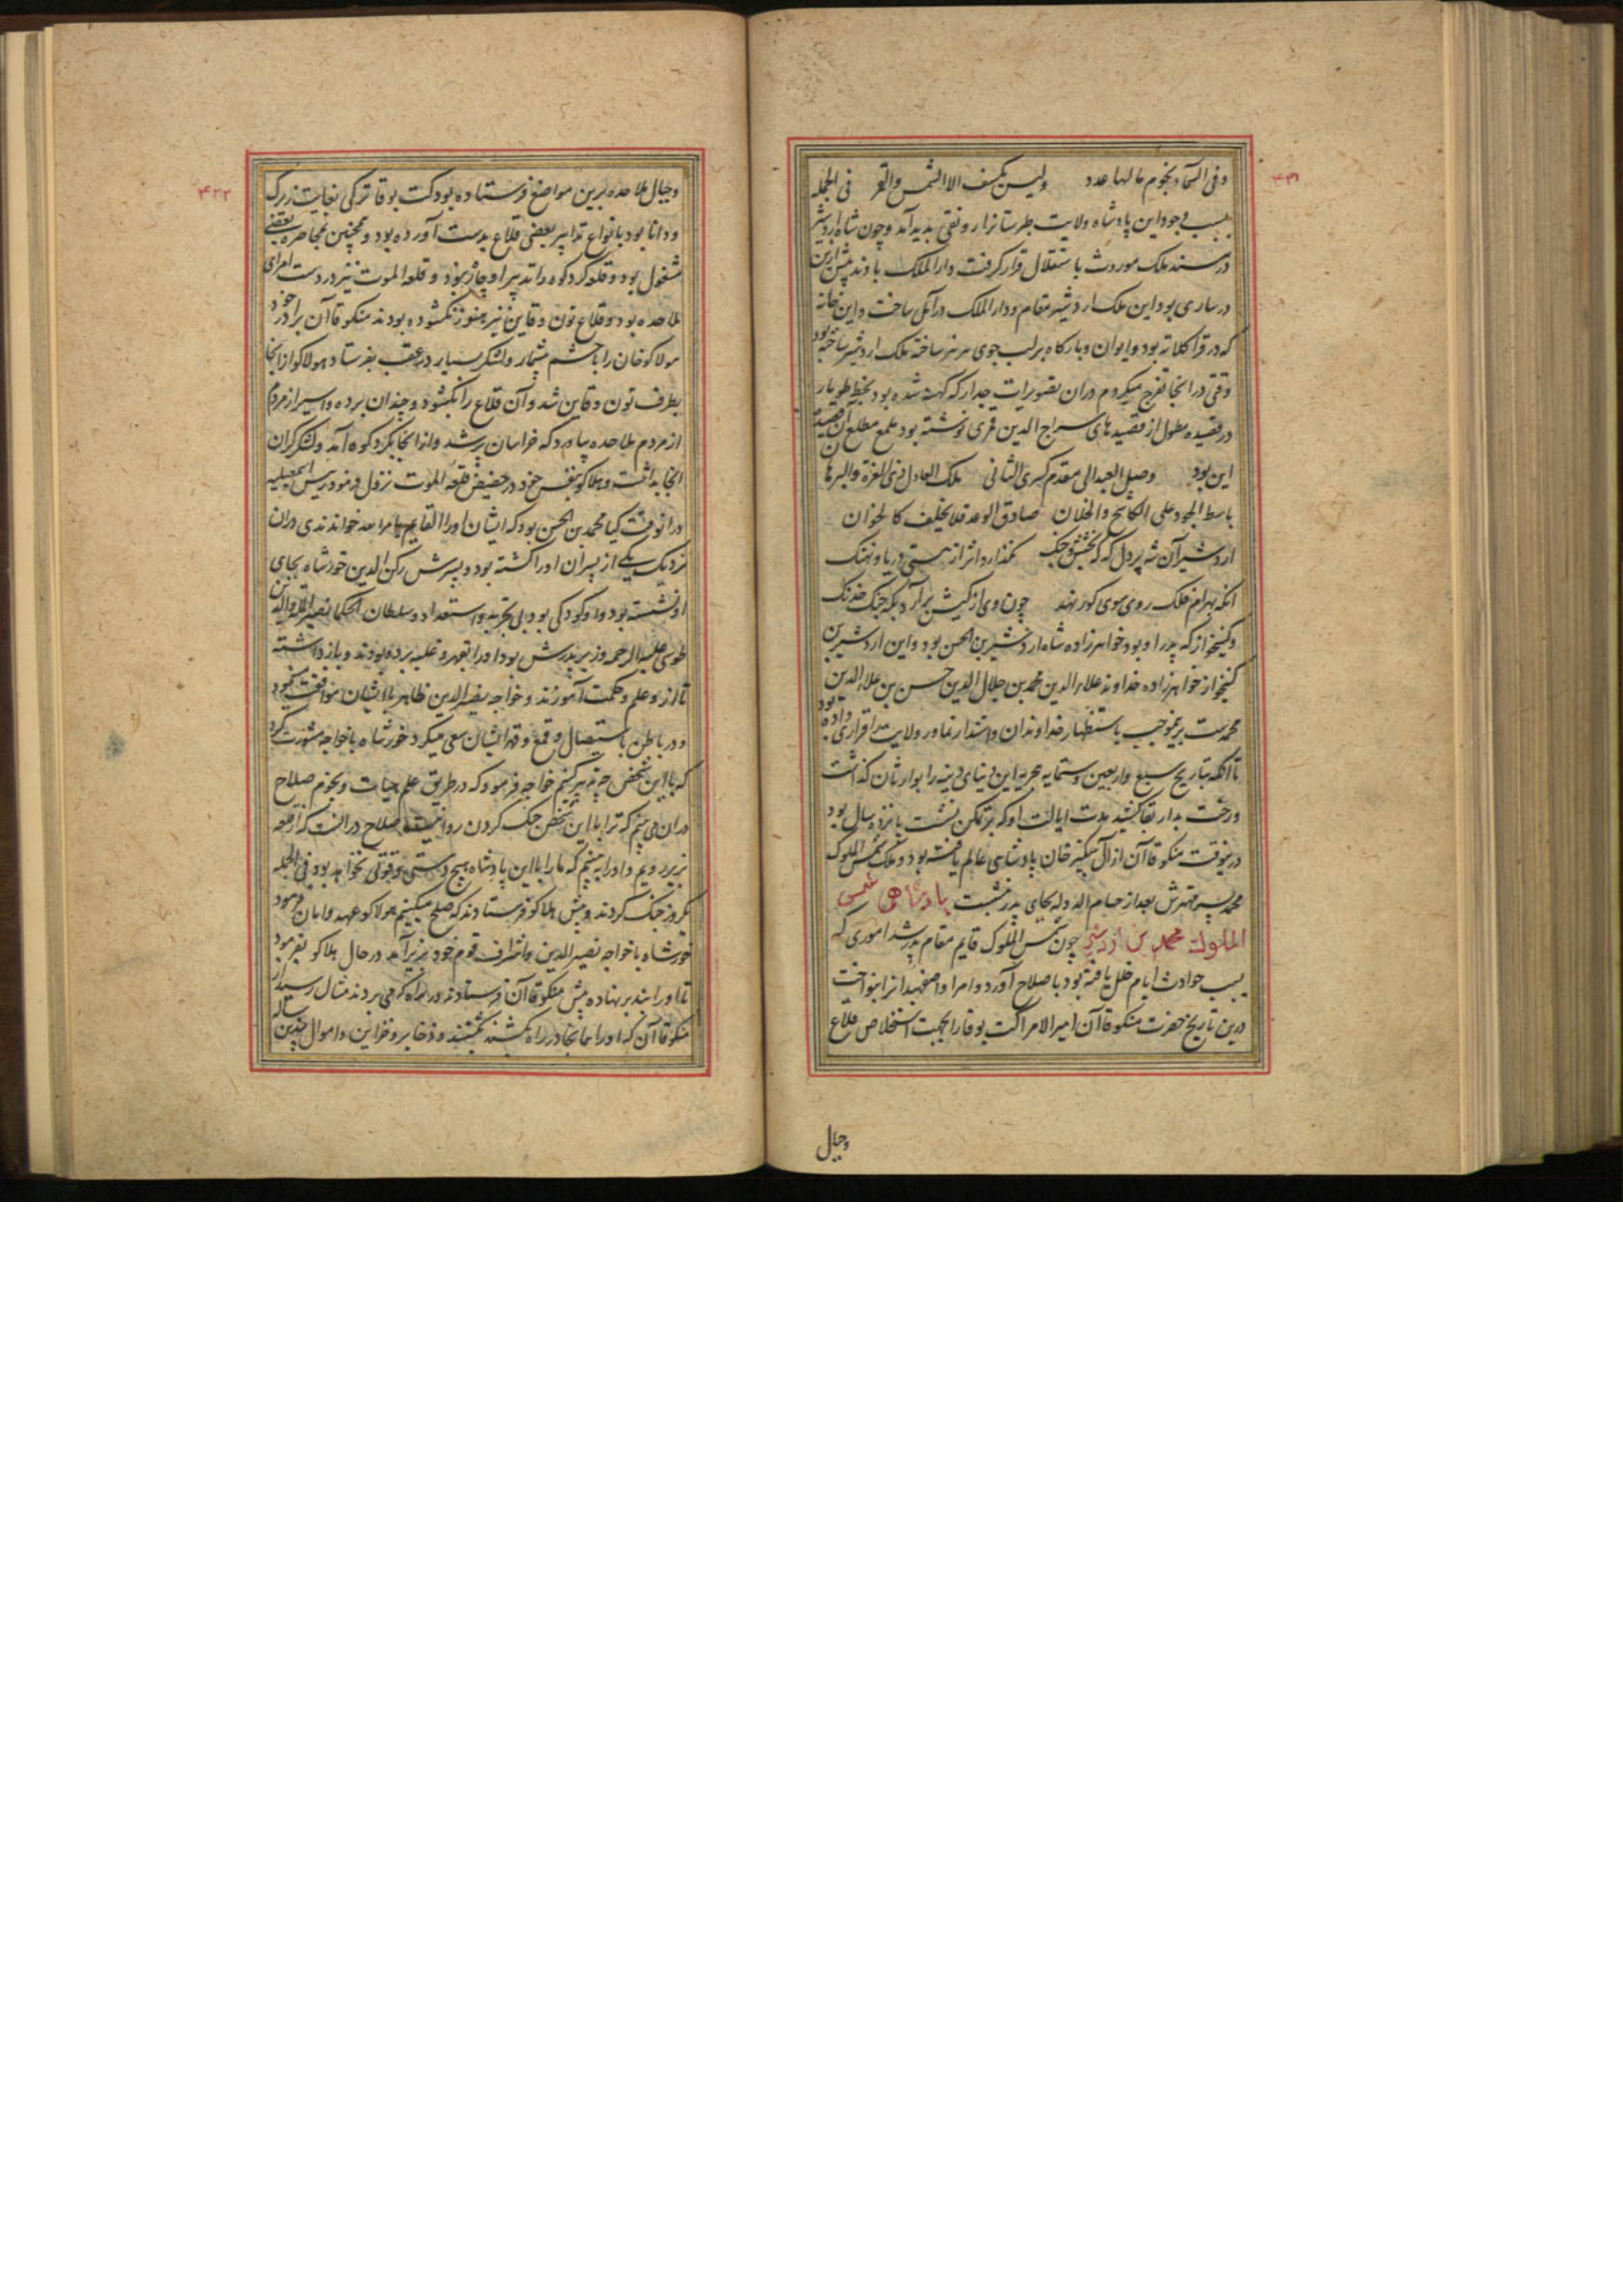 ۴۳۱
وفی السماء نجوم ما لها عدد ولیس یکسف الا الشمس والقمر فی الجمله
بسبب بی‌جود این پادشاه ولایت طبرستانرا رونقی پدید آمد و چون شاه اردشیر
در مسند ملک موروث باستقلال قرار گرفت دار الملک باوند پیش ازین
در ساری بود این ملک اردشیر مقام و دار الملک در آمل ساخت و این خانه
که در قراکلاته بود و ایوان و بارگاه بر لب جوی هرهز ساخته ملک اردشیر ساخته بود
وقتی در آنجا تفرج میکردم در آن تصویرات جدار که کهنه شده بود بخط طومار
در قصیده مطول از قصیدهای سراج الدین قمری نوشته بود ملمع مطلع آن قصیده
این بود وصل العبد الی مقدم کسری الثانی ملک العادل ذی العزة والبرها
ن باسط الجود علی الکاشح والخلان صادق الوعد فلا یخلف کالخوان
اردشیر آن شه پردل که که بخشش و جنگ نگذارد اثر از هستی دریا و نهنگ
آنکه بهرام فلک روی سوی کور نهد چون وی از کیش برآرد بگه جنگ خدنگ
و کینخواز که پدر او بود خواهرزاده شاه اردشیر بن الحسن بود و این اردشیر بن
کینخواز خواهرزاده خداوند علاء الدین محمد بن جلال الدین حسن بن علاء الدین
محمدست بریموجب باستظهار خداوندان و استندار نماور ولایت را قراری داده بود
تا آنکه بتاریخ سبع و اربعین و ستمایه هجریه این دنیای دنیه را بوارثان گذاشت
و رخت بدار بقا کشید مدت ایالت او که بر تمکن نشست پانزده سال بود
درینوقت منکو قاآن از آل چنگیز خان پادشاهی عالم یافته بود و ملک شمس الملوک
محمد پسر مهترش بعد از حسام الدوله بجای پدر نشست پادشاهی شمس
الملوک محمد بن اردشیر چون شمس الملوک قایم مقام پدر شد اموری که
بسبب حوادث ایام خلل یافته بود باصلاح آورد و امرا و اصفهبدانرا بنواخت
درین تاریخ حضرت منکو قاآن امیر الامرا کت بوقا را بجهت استخلاص قلاع
وجبال
۴۳۲
وجبال ملاحده برین مواضع فرستاده بود کت بوقا ترکی بغایت زیرک
و دانا بود بانواع تدابیر بعضی قلاع بدست آورده بود و همچنین بمحاصره بعضی
مشغول بود و قلعه کردکوه را تدبیر او چاره نبود و قلعه الموت نیز در دست امرای
ملاحده بود و قلاع تون و قاین نیز هنوز نگشوده بودند منکو قاآن برادر خود
هولاکو خان را با حشم بیشمار و لشکر بسیار در عقب بفرستاد هولاکو از آنجا
بطرف تون و قاین شد و آن قلاع را بگشود و چندان برده و اسیر از مردم
از مردم ملاحده بیاورد که خراسان پر شد و از آنجا بکردکوه آمد و لشکر گران
آنجا بداشت و هلاکو بنفس خود در حضیض قلعه الموت نزول فرمود رییس اسمعیلیه
در آنوقت کیا محمد بن الحسن بود که ایشان او را القایم بامر الله خواندندی در آن
نزدیک یکی از پسران او را کشته بود و پسرش رکن الدین خورشاه بجای
او نشسته بود و او کودکی بود بی تجربه و استعداد و سلطان الحکما نصیر المله والدین
طوسی علیه الرحمه وزیر پدرش بود او را بقهر و غلبه برده بودند و باز داشته
تا ازو علم و حکمت آموزند و خواجه نصیر الدین ظاهر با ایشان موافقت نمود
و در باطن باستیصال و قمع و قهر ایشان سعی میکرد خورشاه با خواجه مشورت کرد
که با این شخص چه تدبیر کنیم خواجه فرمود که در طریق علم حیات و نجوم صلاح
در آن می‌بینم که ترا با این شخص جنگ کردن روا نیست صلاح در آنست که از قلعه
بزیر رویم و او را ببینیم که ما را با این پادشاه هیچ دستی و قوتی نخواهد بود فی الجمله
یکروز جنگ کردند و پیش هلاکو فرستادند که صلح میکنیم هولاکو عهد و امان فرمود
خورشاه با خواجه نصیر الدین و اشراف قوم خود بزیر آمد در حال هلاکو بفرمود
تا او را بند برنهاده پیش منکو قاآن فرستادند و در راه که می‌بردند مثال رسید از
منکو قاآن که او را همانجا در راه بکشند بکشتند و ذخایر و خزاین و اموال چندین ساله